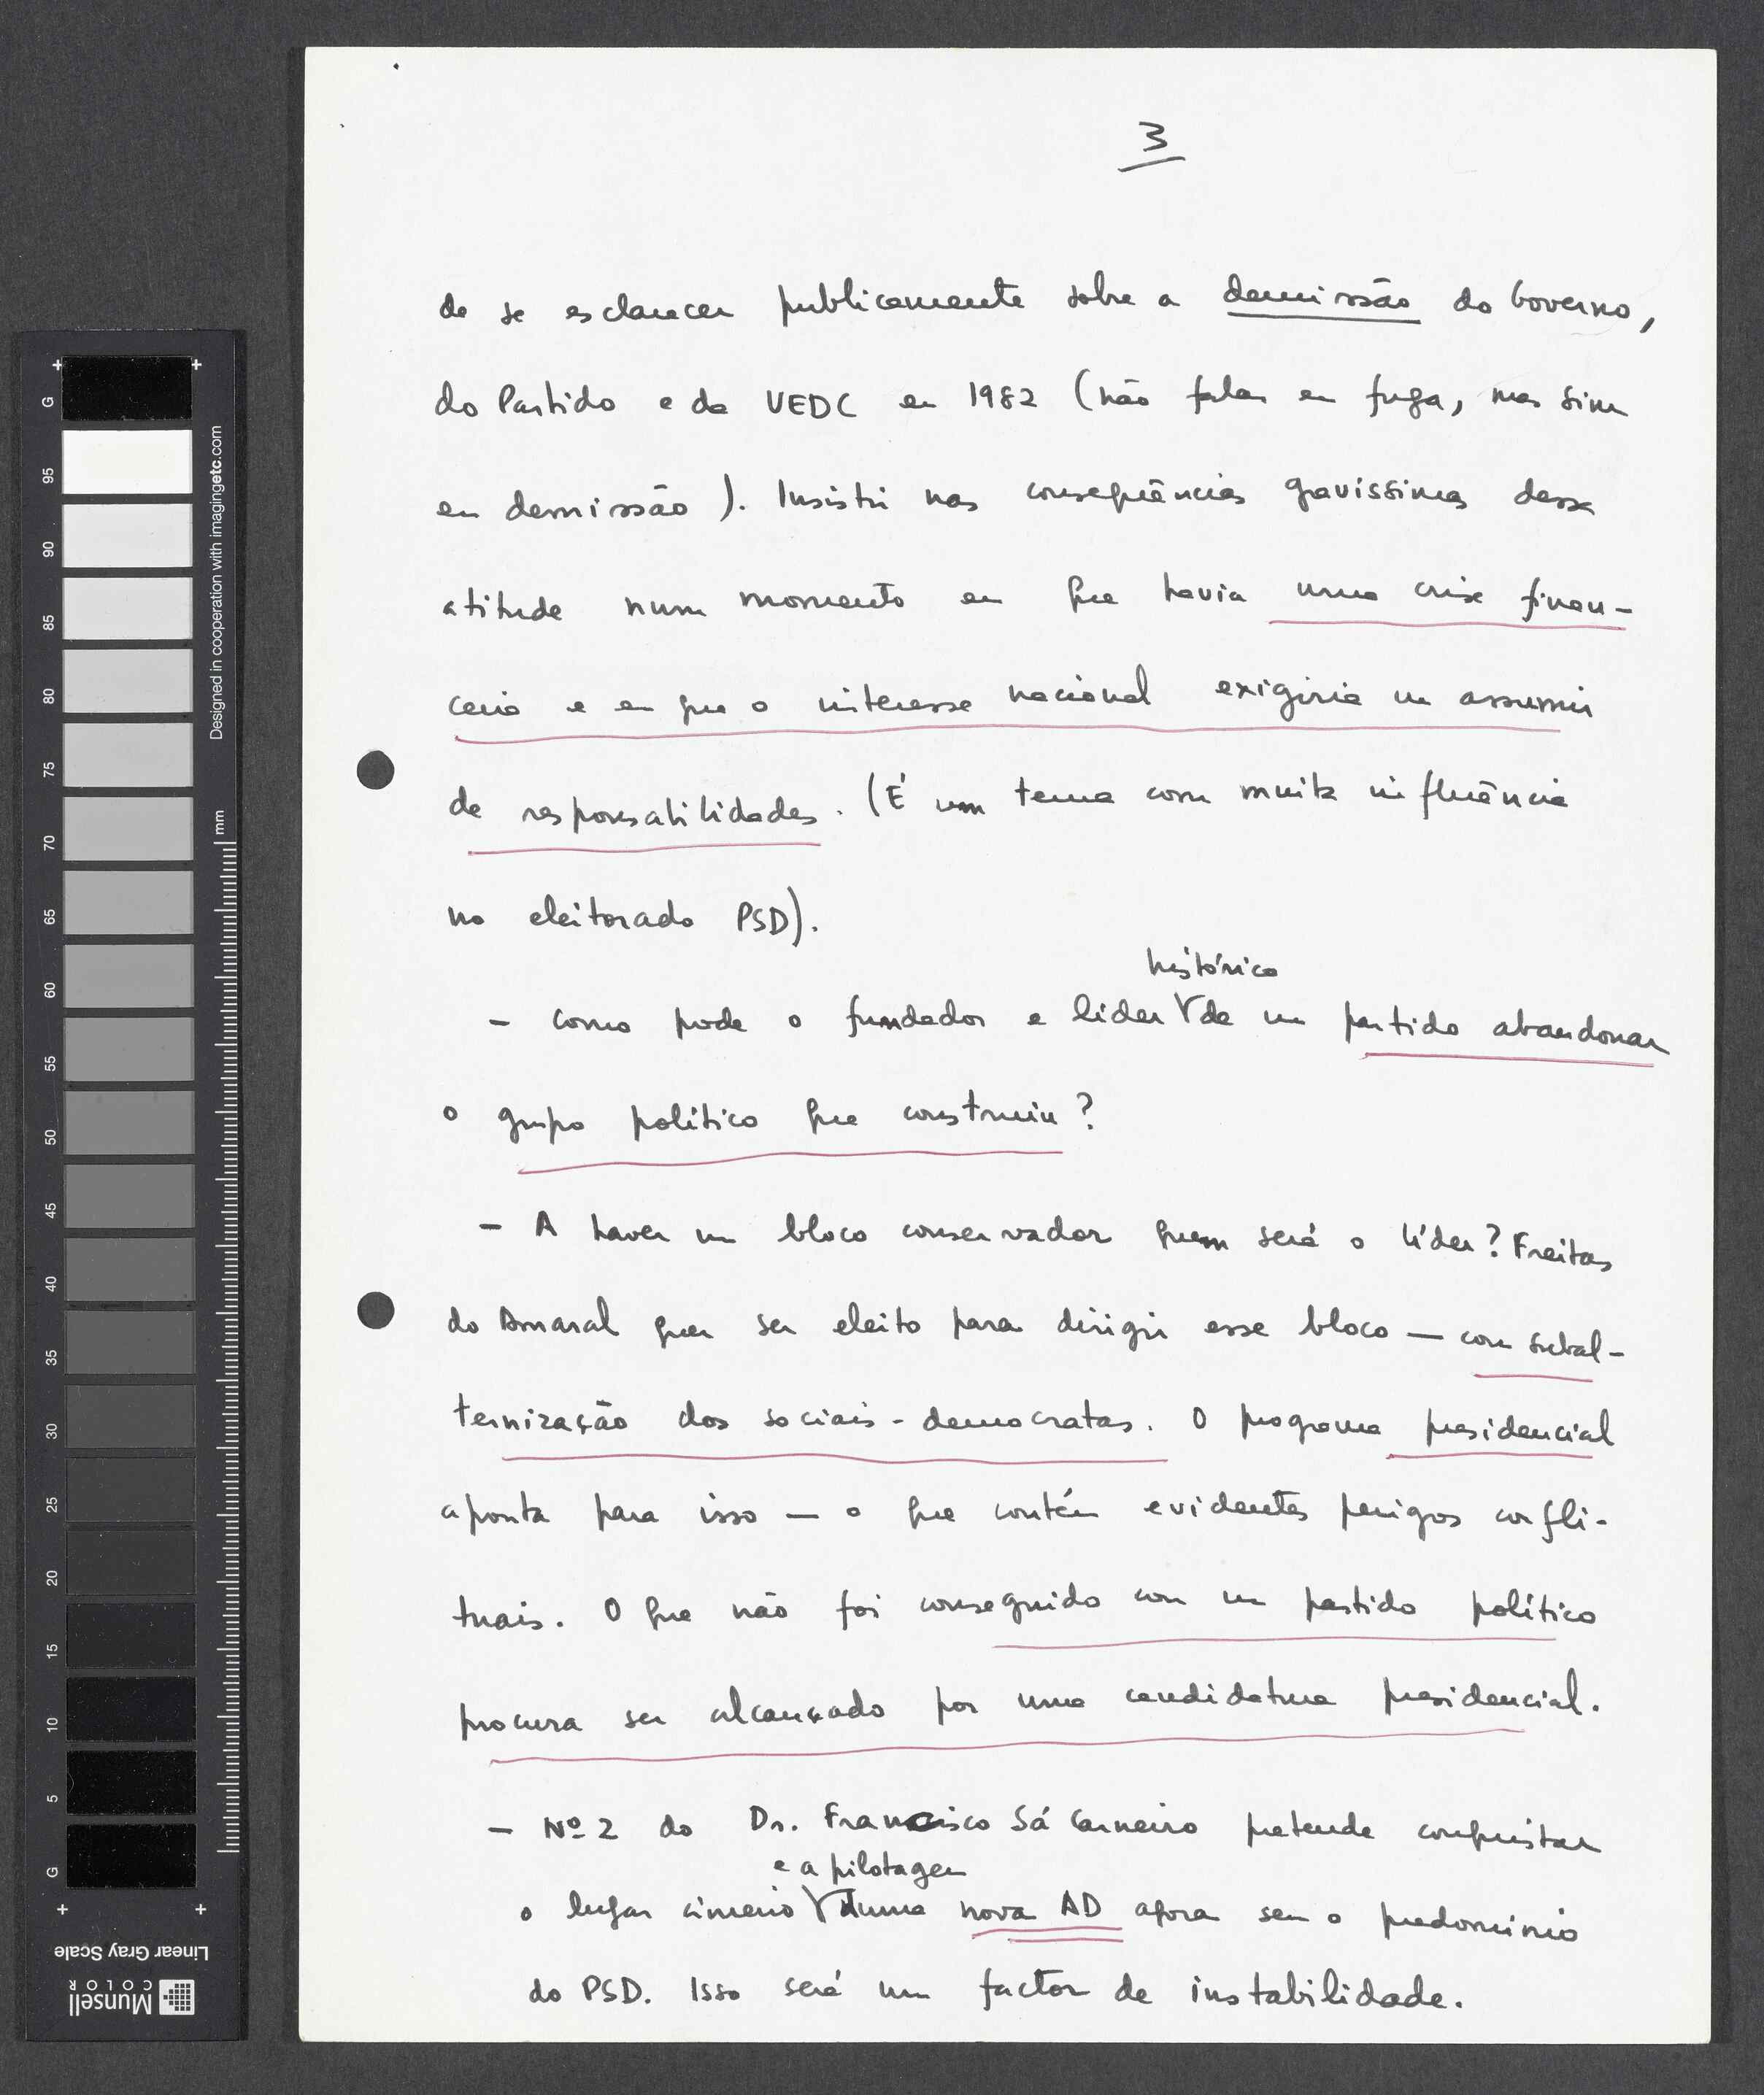 3
de se esclarecer publicamente sobre a demissão do Governo,
do Partido e da UEDC em 1982 (não falar em fuga, mas sim
em demissão). Insistir nas consequências gravíssimas dessa
atitude num momento em que havia uma crise finan-
ceira e em que o interesse nacional exigiria um assumir
de responsabilidades. (É um tema com muita influência
no eleitorado PSD).
histórico
- Como pode o fundador e líder de um partido abandonar
o grupo político que construiu?
- A haver um bloco conservador quem será o líder? Freitas
do Amaral quer ser eleito para dirigir esse bloco — com subal-
ternização dos sociais-democratas. O programa presidencial
aponta para isso — o que contém evidentes perigos confli-
tuais. O que não foi conseguido com um partido político
procura ser alcançado por uma candidatura presidencial.
- Nº 2 do Dr. Francisco Sá Carneiro pretende conquistar
e a pilotagem
o lugar cimeiro duma nova AD agora sem o predomínio
do PSD. Isso será um factor de instabilidade.
G
95
90
85
80
75
70
65
60
55
50
45
40
35
30
25
20
15
10
5
G
Designed in cooperation with imagingetc.com
mm
Linear Gray Scale
Munsell
COLOR